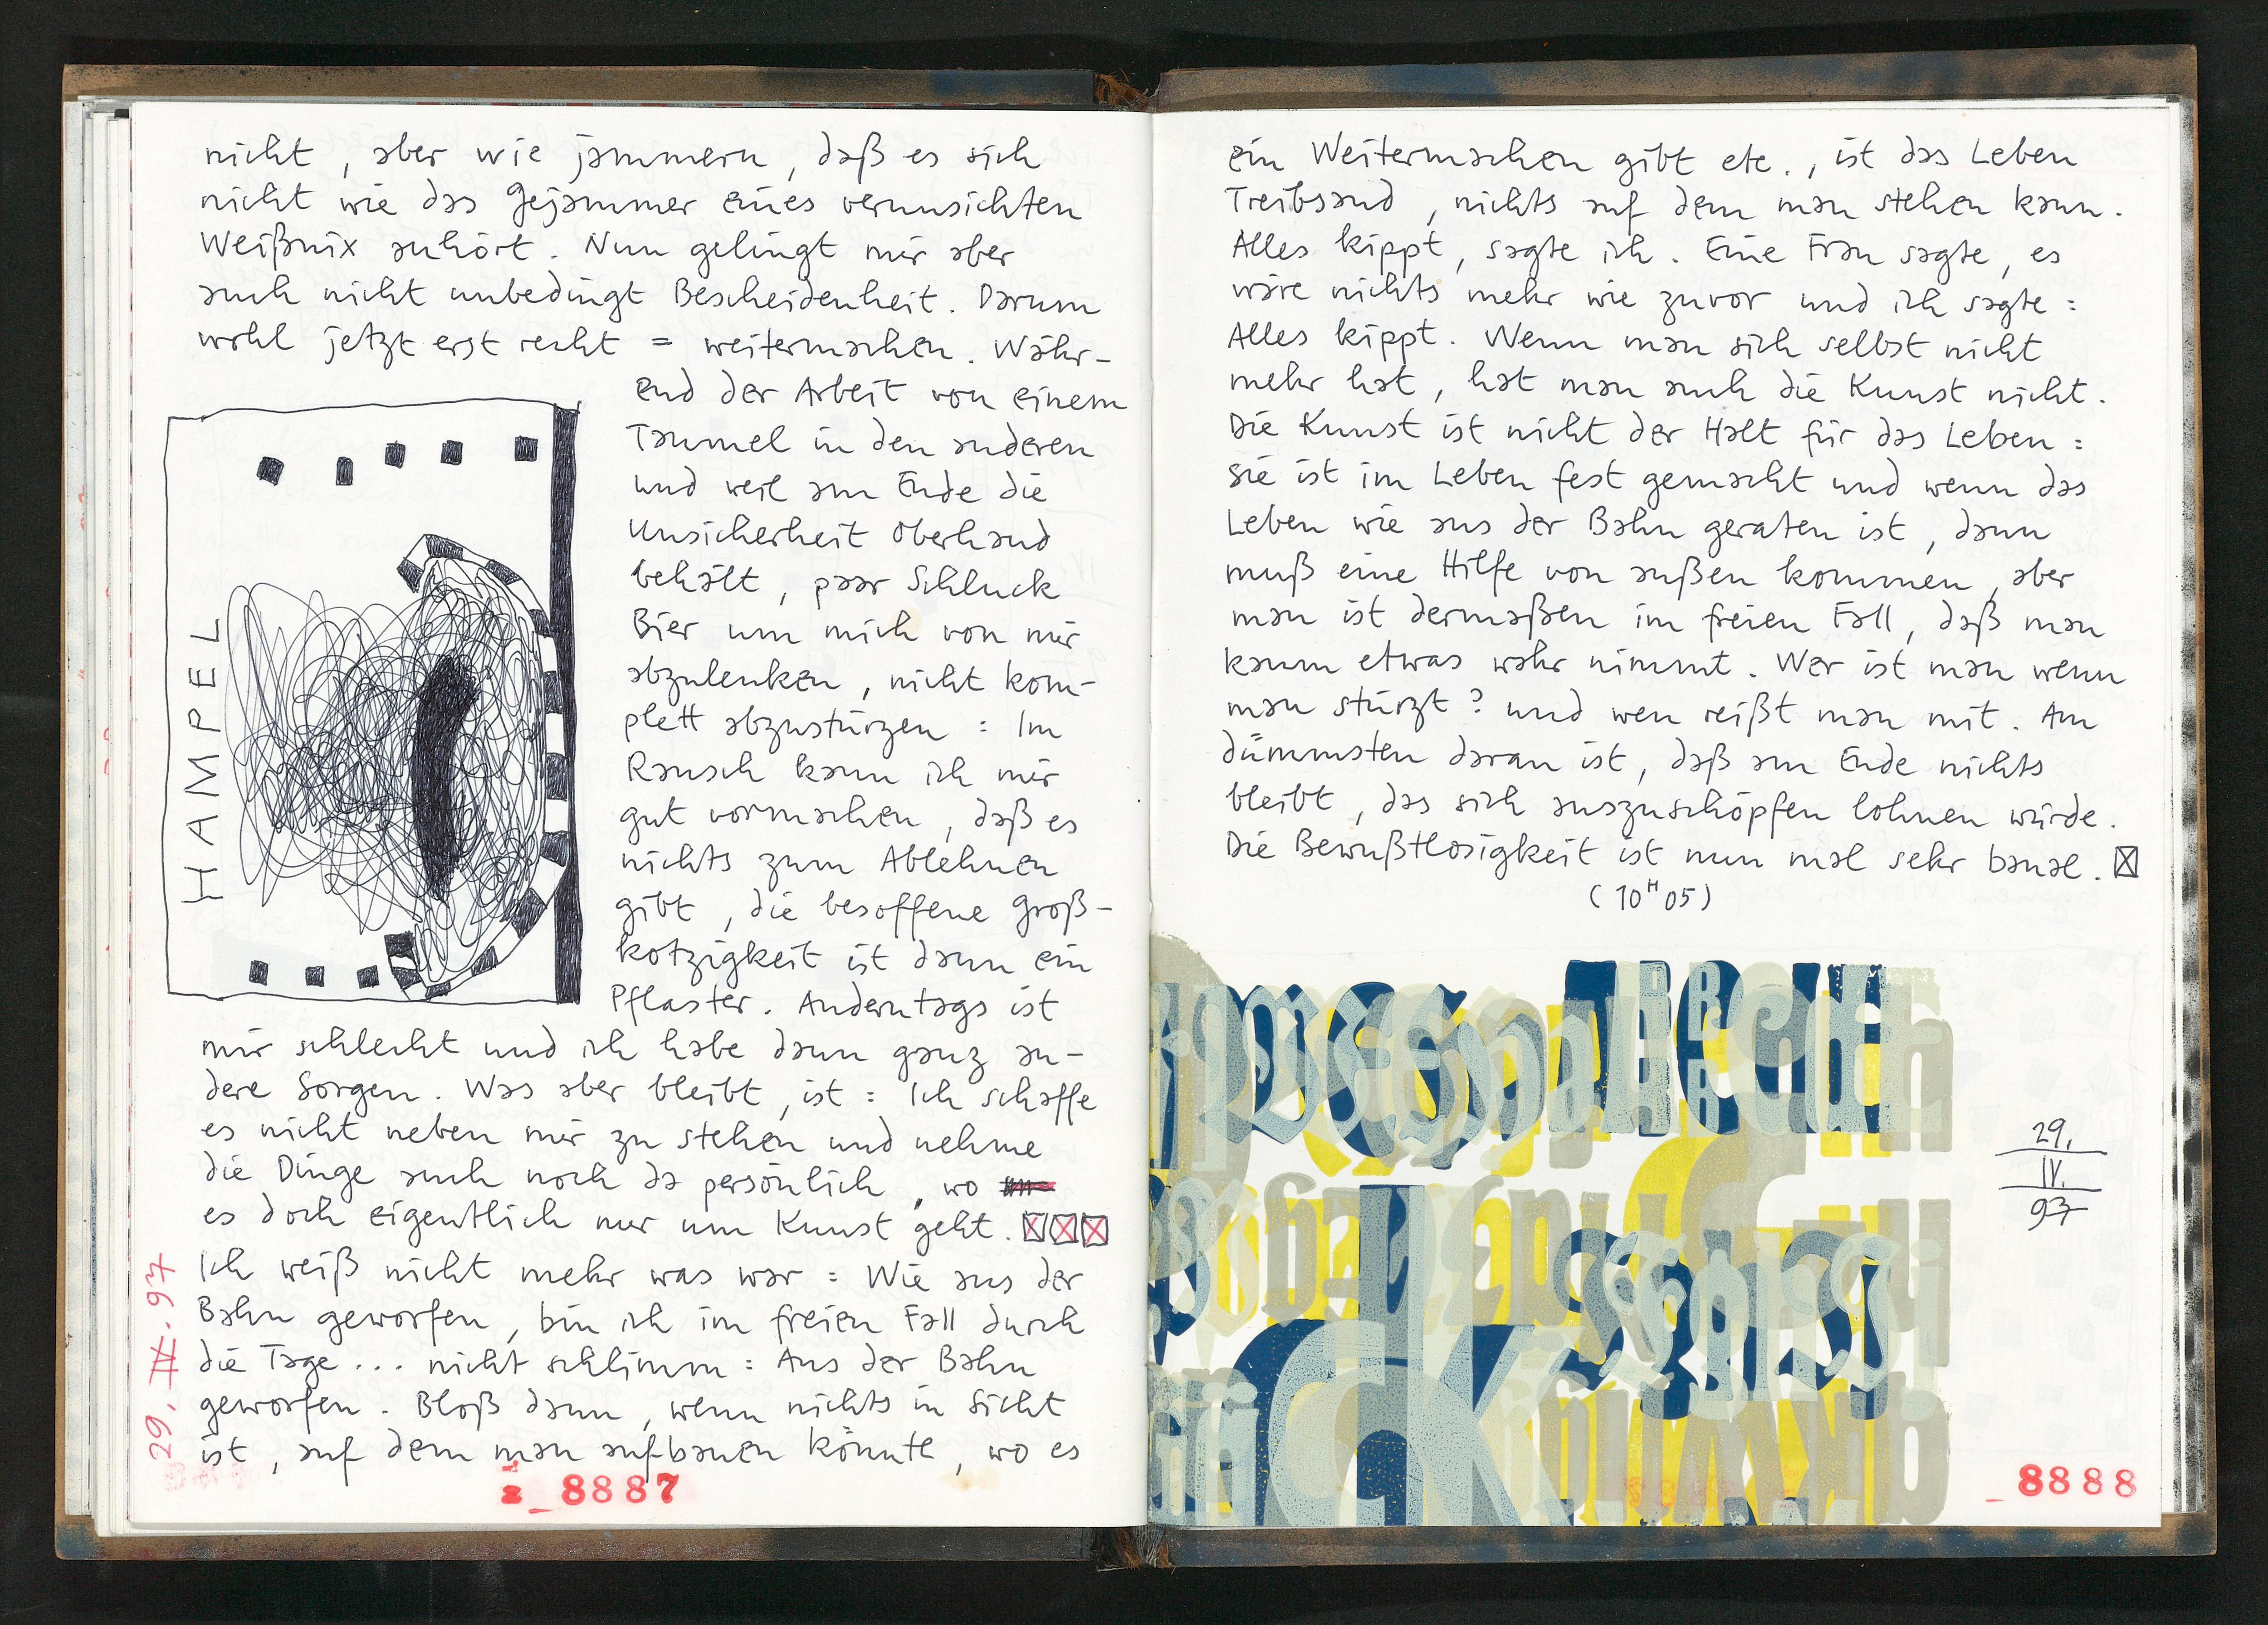 nicht, aber wie jammern, daß es sich
nicht wie das Gejammer eines verunsichten
Weißnix anhört. Nun gelingt mir aber
auch nicht unbedingt Bescheidenheit. Darum
wohl jetzt erst recht = weitermachen. Währ-
end der Arbeit von einem
Taumel in den anderen
und weil am Ende die
Unsicherheit Oberhand
behält, paar Schluck
Bier um mich von mir
abzulenken, nicht kom-
plett abzustürzen: Im
Rausch kann ich mir
gut vormachen, daß es
nichts zum Ablehnen
gibt, die besoffene Groß-
kotzigkeit ist dann ein
Pflaster. Anderntags ist
mir schlecht und ich habe dann ganz an-
dere Sorgen. Was aber bleibt, ist: Ich schaffe
es nicht neben mir zu stehen und nehme
die Dinge auch noch da persönlich, wo
es doch eigentlich nur um Kunst geht.
Ich weiß nicht mehr was war: Wie aus der
Bahn geworfen, bin ich im freien Fall durch
die Tage... nicht schlimm: Aus der Bahn
geworfen. Bloß dann, wenn nichts in Sicht
ist, auf dem man aufbauen könnte, wo es
HAMPEL
29. IV. 97
_8887
ein Weitermachen gibt etc., ist das Leben
Treibsand, nichts auf dem man stehen kann.
Alles kippt, sagte ich. Eine Frau sagte, es
wäre nichts mehr wie zuvor und ich sagte:
Alles kippt. Wenn man sich selbst nicht
mehr hat, hat man auch die Kunst nicht.
Die Kunst ist nicht der Halt für das Leben:
sie ist im Leben fest gemacht und wenn das
Leben wie aus der Bahn geraten ist, dann
muß eine Hilfe von außen kommen, aber
man ist dermaßen im freien Fall, daß man
kaum etwas wahr nimmt. Wer ist man wenn
man stürzt? und wen reißt man mit. Am
dümmsten daran ist, daß am Ende nichts
bleibt, das sich auszuschöpfen lohnen würde.
Die Bewußtlosigkeit ist nun mal sehr banal.
(10H05)
29.
IV.
97
_8888